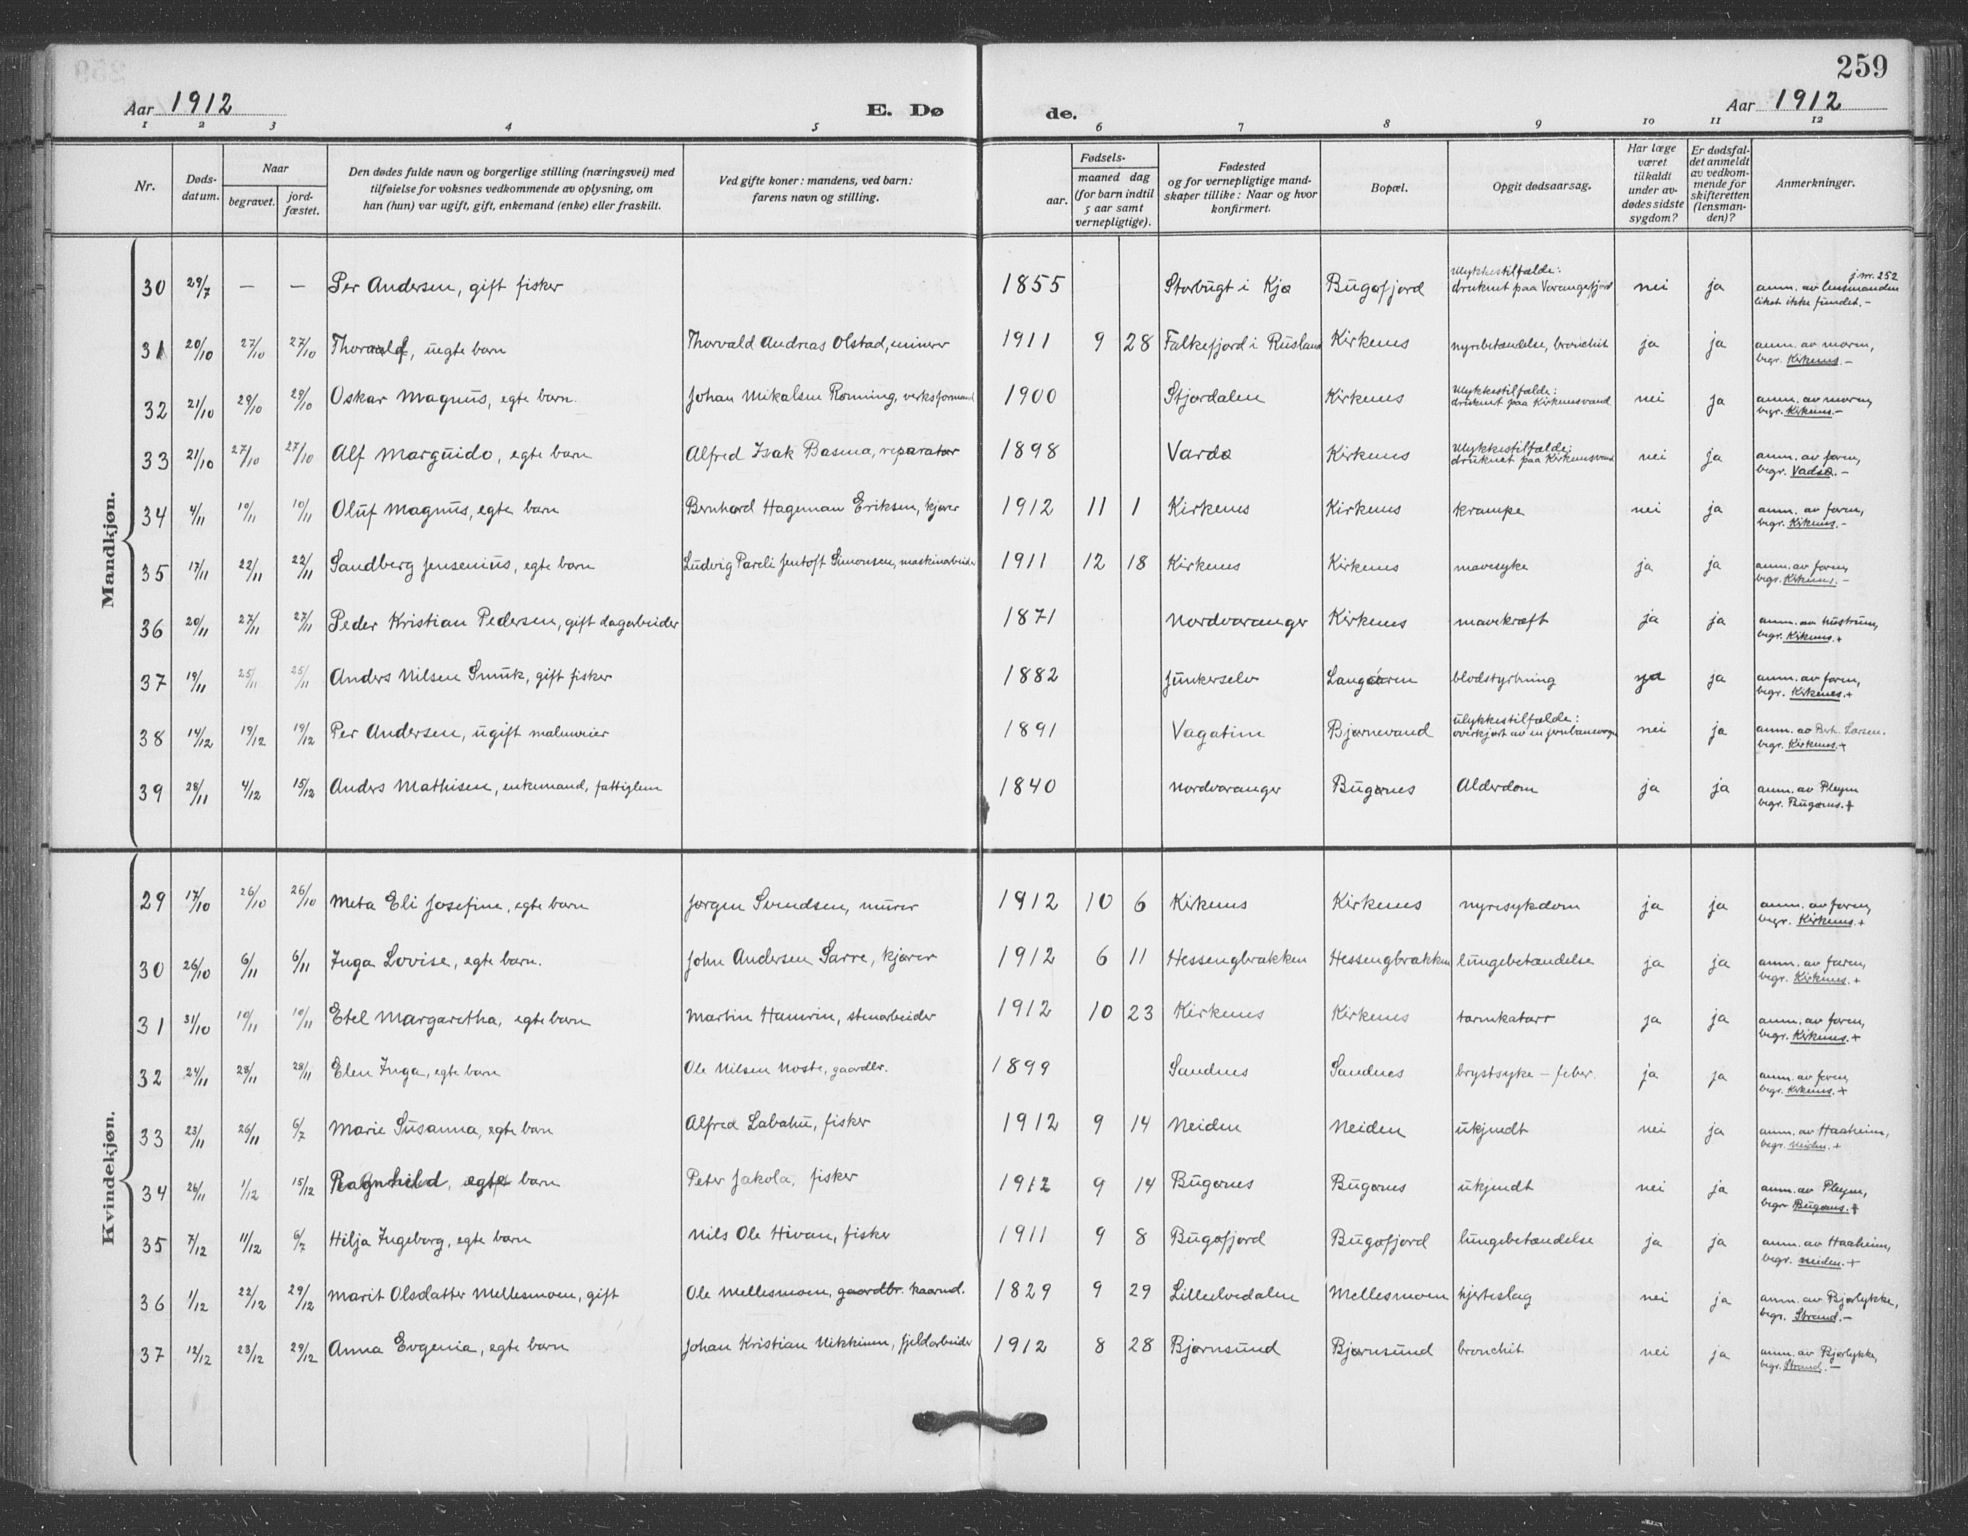 259
Aar 1912
E. Dø
de.
Aar 1912
1 2 3 4 5 6 7 8 9 10 11 12
Nr.
Døds-
datum.
Naar
begravet.
jord-
fæstet.
Den dødes fulde navn og borgerlige stilling (næringsvei) med
tilføielse for voksnes vedkommende av oplysning, om
han (hun) var ugift, gift, enkemand (enke) eller fraskilt.
Ved gifte koner: mandens, ved barn:
farens navn og stilling.
Fødsels-
aar.
maaned dag
(for barn indtil
5 aar samt
vernepligtige).
Fødested
og for vernepligtige mand-
skaper tillike: Naar og hvor
konfirmert.
Bopæl.
Opgit dødsaarsag.
Har læge
været
tilkaldt
under av-
dødes sidste
sygdom?
Er dødsfal-
det anmeldt
av vedkom-
mende for
skifteretten
(lensman-
den)?
Anmerkninger.
Mandkjøn.
30 29/7 — — Per Andersen, gift fisker 1855 Storbugt i Kjø Bugøfjord ulykkestilfælde: druknet paa Varangerfjord nei ja j.nr. 252 anm. av lensmanden liket ikke fundet. –
31 20/10 27/10 27/10 Thorvald, uegte barn Thorvald Andreas Olstad, minør 1911 9 28 Falkefjord i Rusland Kirkenes nyrebetændelse, bronchit ja ja anm. av moren, begr. Kirkenes –
32 21/10 29/10 29/10 Oskar Magnus, egte barn. Johan Mikalsen Rønning, verksformand 1900 Stjørdalen Kirkenes ulykkestilfælde: druknet paa Kirkenesvand nei ja anm. av moren, begr. Kirkenes –
33 21/10 27/10 27/10 Alf Marguido, egte barn Alfred Isak Basma, reparatør 1898 Vardø Kirkenes ulykkestilfælde: druknet paa Kirkenesvand nei ja anm. av faren, begr. Vadsø. –
34 4/11 10/11 10/11 Oluf Magnus, egte barn Bernhard Hageman Eriksen, kjører 1912 11 1 Kirkenes Kirkenes krampe nei ja anm. av faren, begr. Kirkenes. –
35 17/11 22/11 22/11 Sandberg Jensenius, egte barn Ludvig Pareli Jentoft Simonsen, maskinarbeider 1911 12 18 Kirkenes Kirkenes mavesyke ja ja anm. av faren, begr. Kirkenes. –
36 20/11 27/11 27/11 Peder Kristian Pedersen, gift dagarbeider 1871 Nordvaranger Kirkenes mavekræft ja ja anm. av hustruen, begr. Kirkenes. +
37 19/11 25/11 25/11 Anders Nilsen Smuk, gift fisker 1882 Junkerselv Langøren blodstyrtning ja ja anm. av faren, begr. Kirkenes. +
38 14/12 19/12 19/12 Per Andersen, ugift malmveier 1891 Vagatim Bjørnevand ulykkestilfælde: overkjørt av en jernbanevogn nei ja anm. av Bert. Larsen. begr. Kirkenes. +
39 28/11 4/12 15/12 Anders Mathisen, enkemand, fattiglem 1840 Nordvaranger Bugønes Alderdom ja ja anm. av Pleym begr. Bugønes. +
Kvindekjøn.
29 17/10 26/10 26/10 Meta Eli Josefine, egte barn Jørgen Svendsen, murer 1912 10 6 Kirkenes Kirkenes nyresykdom ja ja anm. av faren, begr. Kirkenes. +
30 26/10 6/11 6/11 Inga Lovise, egte barn. John Andersen Sarre, kjører 1912 6 11 Hessengbrakken Hessengbrakken lungebetændelse ja ja anm. av faren, begr. Kirkenes. +
31 31/10 10/11 10/11 Etel Margaretha, egte barn Martin Hamrin, stenarbeider 1912 10 23 Kirkenes Kirkenes tarmkatarr ja ja anm. av faren, begr. Kirkenes. +
32 24/11 28/11 28/11 Elen Inga, egte barn Ole Nilsen Noste, gaardbr. 1899 Sandnes Sandnes brystsyke – feber. ja ja anm. av faren, begr. Kirkenes. +
33 23/11 26/11 6/7 Marie Susanna, egte barn Alfred Labahu, fisker 1912 9 14 Neiden Neiden ukjendt nei ja anm. av Haaheim, begr. Neiden. +
34 26/11 1/12 15/12 Ragnhild, egte barn Peter Jakola, fisker 1912 9 14 Bugønes Bugønes ukjendt nei ja anm. av Pleym, begr Bugønes. +
35 7/12 11/12 6/7 Hilja Ingeborg, egte barn Nils Ole Hivan, fisker 1911 9 8 Bugøfjord Bugøfjord lungebetændelse ja ja anm. av Haaheim, begr. Neiden. +
36 1/12 22/12 29/12 Marit Olsdatter Mellesmoen, gift Ole Mellesmoen, gaardbr. kaarmd. 1829 9 29 Lilleelvedalen Mellesmoen hjerteslag nei ja anm. av Bjørlykke, begr. Strand. –
37 12/12 23/12 29/12 Anna Evgenia, egte barn Johan Kristian Nikkinen, fjeldarbeider 1912 8 28 Bjørnsund Bjørnsund bronchit nei ja anm. av Bjørlykke, begr. Strand. –